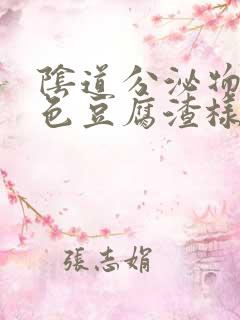 陰道分泌物
色豆腐渣樣
張志娟